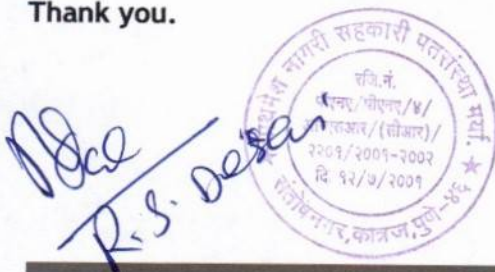 Thank you.
नागरी सहकारी पतसंस्था मर्या.
रजि.नं.
पीएनए/पीएनए/४/
/(सीआर)/
२२०१/२००१-२००२
दि १२/७/२००१
संतोषनगर,कात्रज,पुणे-४६
R.S. Desai